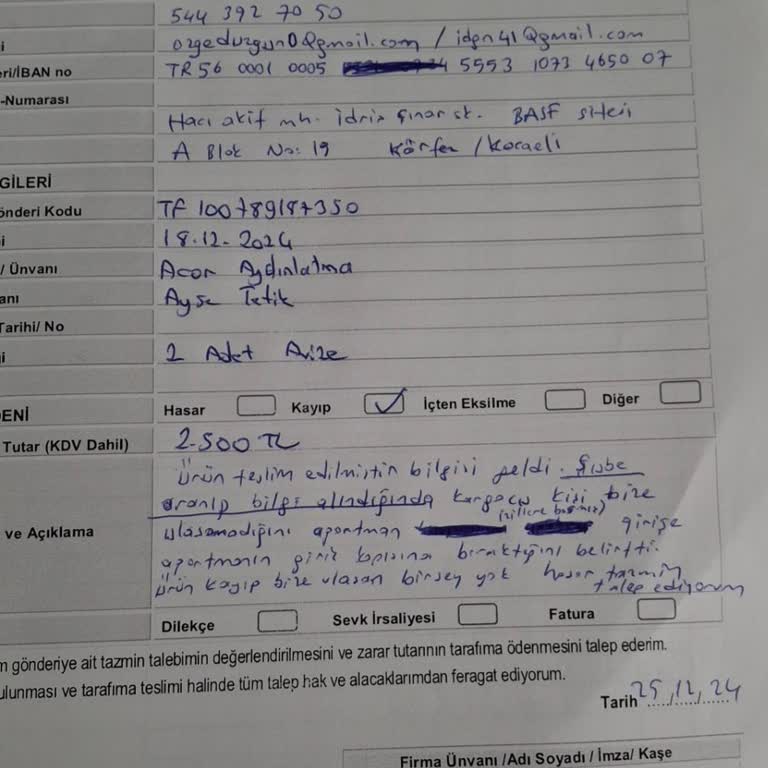 544 392 70 50
i ozgedurgun0@gmail.com / idgn41@gmail.com
eri/IBAN no TR56 0001 0005 5553 1073 4650 07
-Numarası
Hacı akif mh. idris çınar sk. BASF sitesi
A Blok No: 19 Körfez / Kocaeli
GİLERİ
önderi Kodu TF 100789187350
i 18.12.2024
/ Ünvanı Acar Aydınlatma
anı Ayşe Tetik
Tarihi/ No
i 2 Adet Avize
DENİ Hasar Kayıp İçten Eksilme Diğer
Tutar (KDV Dahil) 2.500 TL
Ürün teslim edilmiştir bilgisi geldi. Şube
aranıp bilgi alındığında kargocu kişi bize
ve Açıklama ulaşamadığını apartman (zillere basmış) girişe
apartmanın giriş kapısına bıraktığını belirtti.
Ürün kayıp bize ulaşan birşey yok hasar tazmin
talep ediyorum
Dilekçe Sevk İrsaliyesi Fatura
m gönderiye ait tazmin talebimin değerlendirilmesini ve zarar tutarının tarafıma ödenmesini talep ederim.
ulunması ve tarafıma teslimi halinde tüm talep hak ve alacaklarımdan feragat ediyorum.
Tarih 25/12/24
Firma Ünvanı /Adı Soyadı / İmza/ Kaşe